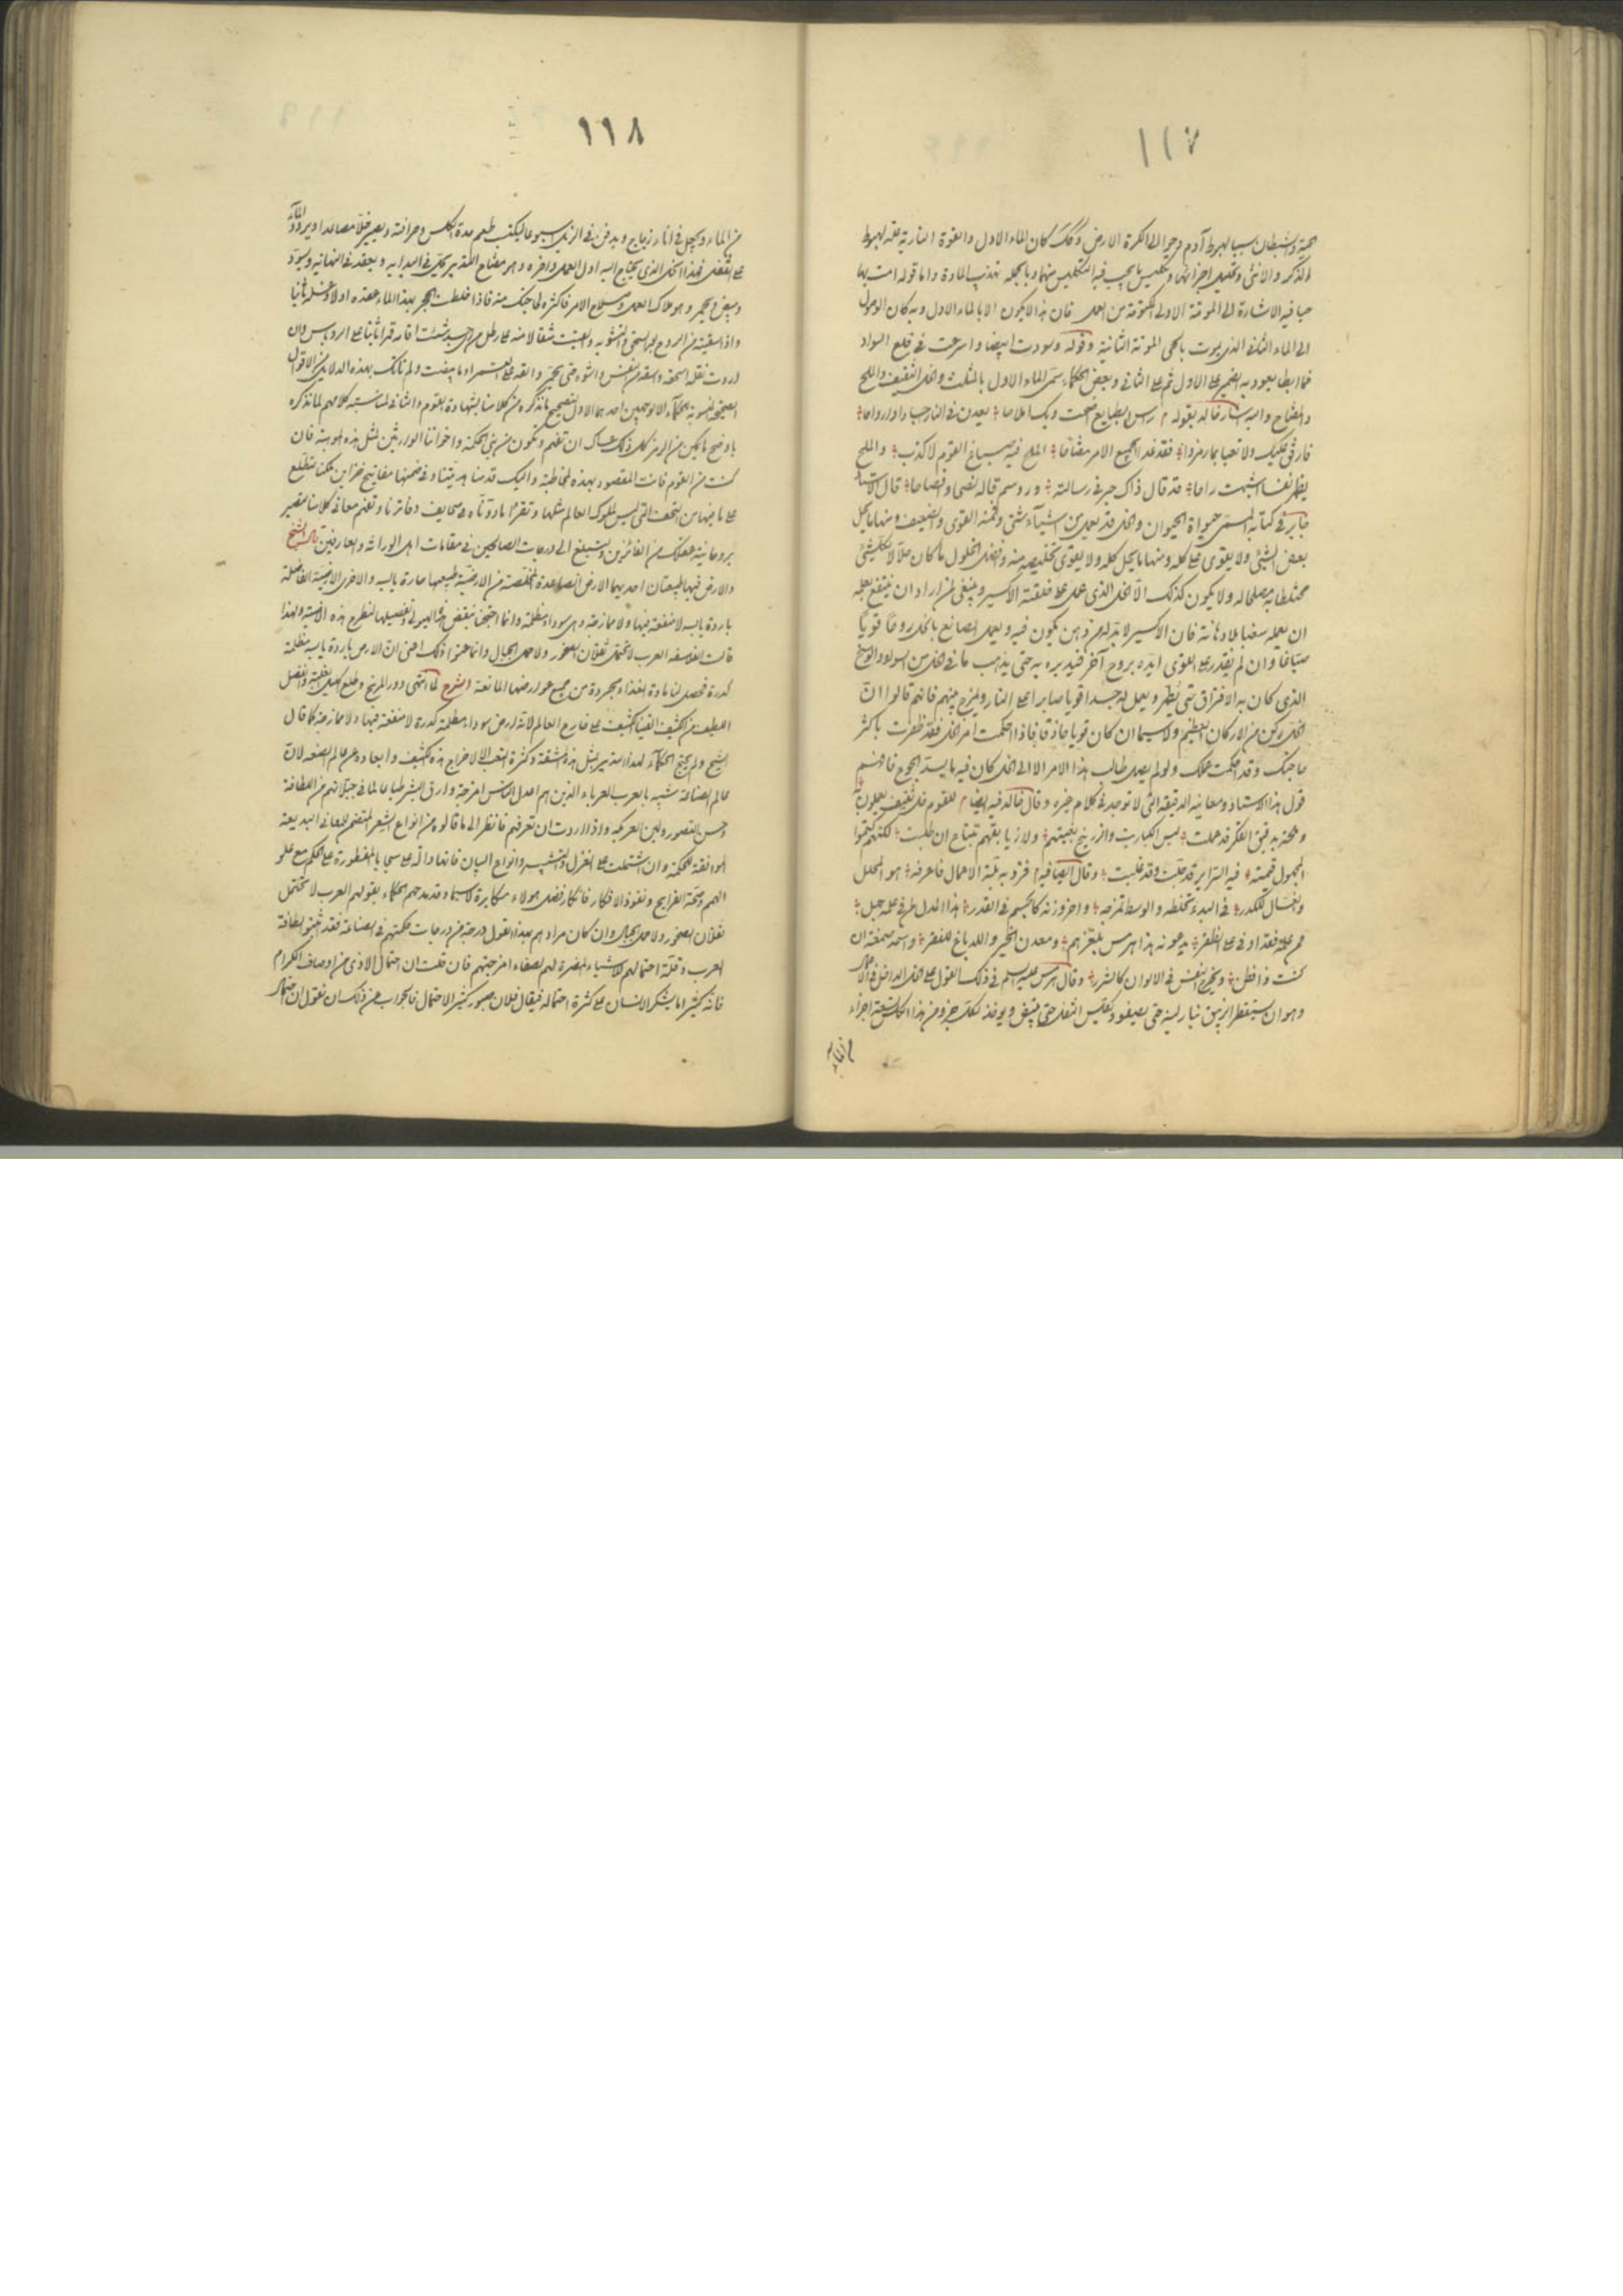 ١١٧
حية وشيطان سببا لهبوط آدم وحوا الى الكرة الارض وكذلك كان الماء الاول والقوة النارية علة لهبوط
الذكر والانثى وتحليل اجزائهما وتكليس ما يجب فيه التكليس منهما وبالجملة تهذيب المادة واما قوله امت بها
حيا فيه الاشارة الى الموتة الاولى المكتومة من العمل فان هذا لا يكون الا بالماء الاول وبه كان الوصول
الى الماء الثانى الذى يموت بالحى الموتة الثانية وقوله وسودت ابيضا واسرعت فى قلع السواد
فما ابطا يعود به الضمير على الاول ثم على الثانى وبعض الحكماء سمى الماء الاول بالمثلث والخل الثقيف والملح
والمفتاح واليه اشار خالد بقوله
فارفق عليك ولا تعبا بما رمزوا فقد غدا لجميع الامر مفتاحا الملح فيه صباغ القوم لا كذب والملح
قد قال ذاك جبر فى رسالته قال الاستاذ
جابر فى كتابه المسمى حيواة الحيوان والخل قد يعمل من اشياء شتى ولكنه القوى والضعيف ومنها ما يحل
بعض الشئ ولا يقوى على كله ومنها ما يحل كله ولا يقوى تخليصه منه وافضل الخلول ما كان حلالا لكل شئ
مختلطا به مصلحا له ولا يكون كذلك الا الخل الذى عمل على خلقته الاكسير وينبغى لمن اراد ان ينتفع بعلمه
ان يعمله بلا دهانة فان الاكسير لابد له من دهن يكون فيه ويعمل الصانع بالخل روحا قويا
صباغا وان لم يقدر على القوى ايده بروح آخر فيدبره به حتى يذهب ما فى الخل من السواد والوسخ
الذى كان به الافتراق حتى يطهر ويعمل له جسدا قويا صابرا على النار ويمزج بينهم فانهم قالوا ان
الخل ركن من الاركان العظيم ولاسيما ان كان قويا حاذقا فاذا احكمت امر الخل فقد ظفرت باكثر
حاجتك وقد احكمت عملك ولو لم يصل طالب هذا الامر الا الى الخل كان فيه ما يسد الجوع فافهم
قول هذا الاستاذ ومعانيه الدقيقة التى لا توجد فى كلام غيره وقال خالد فيه ايضا للقوم خل ثقيف يعملون به
ومحنة بدقيق الفكر قد عملت ليس الكباريت والزرنيخ بغيتهم ولا زيابقهم تبتاع ان طلبت لكنهم كتموا
المجهول قيمته فيه السراير قد جلت وقد غلبت وقال ايضا فيه فزد به بمية الاعمال فاعرفه هو المحلل
والغسال للكدر فى البدء تخلطه والوسط تمزجه واحرز وزنه كالجسم فى القدر هذا المدل على عمل
من علمه فقد اوفى على الظفر يدعونه هذا هرمس بلغزهم ومعدن الخير والله باغ للفقر واسمه صنعة ان
كنت ذا فطن ويخرج النفس فى الالوان كالشرر وقال هرمس عليه السلام فى ذلك القول على الخل الداخل فى الاعمال
وهو ان يستقطر الزيبق بنار لينة حتى يصفو ويكلس الثفل حتى يبيض ويوخذ لكل جزو من هذا الكلس تسعة اجزاء
من الماء
١١٨
من الماء ويجعل فى اناء زجاج ويدفن فى الزبل اسبوعا ليكتسب طعم حدة الكلس وحرافته ويصير خلا مصاعدا ويرد الماء
على الثفل فهذا الخل الذى يحتاج اليه اول العمل واخره وهو مفتاح التدبير يحل فى البداية ويعقد فى النهاية ويسود
ويبيض ويحمر وهو ملاك العمل وصلاح الامر فاكثره لحاجتك منه فاذا خلطت الحجر بهذا الماء عقده اولا وغسله ثانيا
واذا سقيته من الروح بعد السحق والتشوية والقيت مثقالا منه على رطل من اى جسد شئت اقامه قمرا ثابتا على الروباس وان
اردت نقله الحمرة واسقه من النفس والشوه حتى يحمر والقه على القمر ولم ناتك بهذه الدلايل من الاقوال
الصحيحة المنسوبة الى الحكماء الا لوجهين احدهما الاول لتصحيح ما نذكره من كلامنا بشهادة القوم والثانى لمناسبة كلامهم لما نذكره
باوضح ما يمكن من الرمز كل ذلك عساك ان تفهم وتكون من بنى الحكمة واخواننا الوارثين لمثل هذه الموهبة فان
كنت من القوم فانت المقصود بهذه المخاطبة واليك قدمنا هديتنا وفى ضمنها مفاتيح خزاين حكمنا لتطلع
على ما فيها من التحف التى ليس لملوك العالم مثلها وتقرأ ما رويناه فى صحايف دفاترنا وتفهم معانى كلامنا فتصير
بروحانية عقلك من الفائزين وتستبلغ الى درجات الصالحين فى مقامات اهل الوراثة والعارفين قال الشيخ
والارض فيها طبيعتان احديهما الارض الصاعدة المخلصة من الارضية طبيعها حارة يابسة والاخرى الارضية الفاضلة
باردة يابسة لا منفعة فيها ولا ممازجة وهى سوداء مظلمة وانما احتجنا لتفصيلها لنطرح هذه الارضية ولهذا
قالت الفلاسفه العرب لا تحتمل ثقلان الصخور ولا حمل الجبال وانما عنوا ذلك اعنى ان الارض باردة يابسة مظلمة
كدرة فحصل لنا مادة الغذاء مجردة من جميع عوارضها المانعة الشرح لما انتهى دور المريخ وطلع
اللطيف من الكثيف القينا الكثيف على خارج العالم لانه ارض سوداء مظلمة كدرة لا منفعة فيها ولا ممازجة كما قال
الشيخ ولم يحتج الحكماء لهذا التدبير بمثل هذه المشقة وكثرة التعب الا لاخراج هذه الكثيف وابعاده عن عالم الصنعة لان
عالم الصناعة شبيه بالعرب العرباء الذين هم اعدل الناس امزجة وارق البشر طباعا لما فى جبلاتهم من اللطافة
وحسن التصور ولين العريكه واذا اردت ان تعرفهم فانظر الى ما قالوه من انواع الشعر المتضمن للمعانى البديعة
الموافقة للحكمة وان اشتملت على الغزل والتشبيب وانواع البيان فانها دالة على سجاياهم المفطورة على الحكم مع علو
الهمم وصحة القرايح ونفوذ الافكار فانكار فضل هولاء مكابرة لاسيما وقد مدحهم الحكماء بقولهم العرب لا تحتمل
ثقلان الصخور ولا حمل الجبال وان كان مرادهم بهذا القول درجة من درجات حكمتهم فى الصناعة فقد اثبتوا لطافة
العرب وقلة احتمالهم للاشياء المضرة لهم لصفاء امزجتهم فان قلت ان احتمال الاذى من اوصاف الكرام
فانه كثيرا ما يشكر الانسان على كثرة احتماله فيقال فلان صبور كثير الاحتمال فالجواب عن ذلك ان نقول ان احتمال